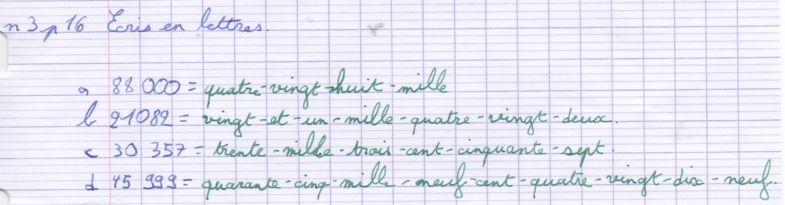 n 3 p 16 Ecris en lettres.
a 88 000 = quatre-vingt-huit-mille
b 21082 = vingt-et-un-mille-quatre-vingt-deux.
c 30 357 = trente-mille-trois-cent-cinquante-sept.
d 45 999 = quarante-cinq-mille-neuf-cent-quatre-vingt-dix-neuf.